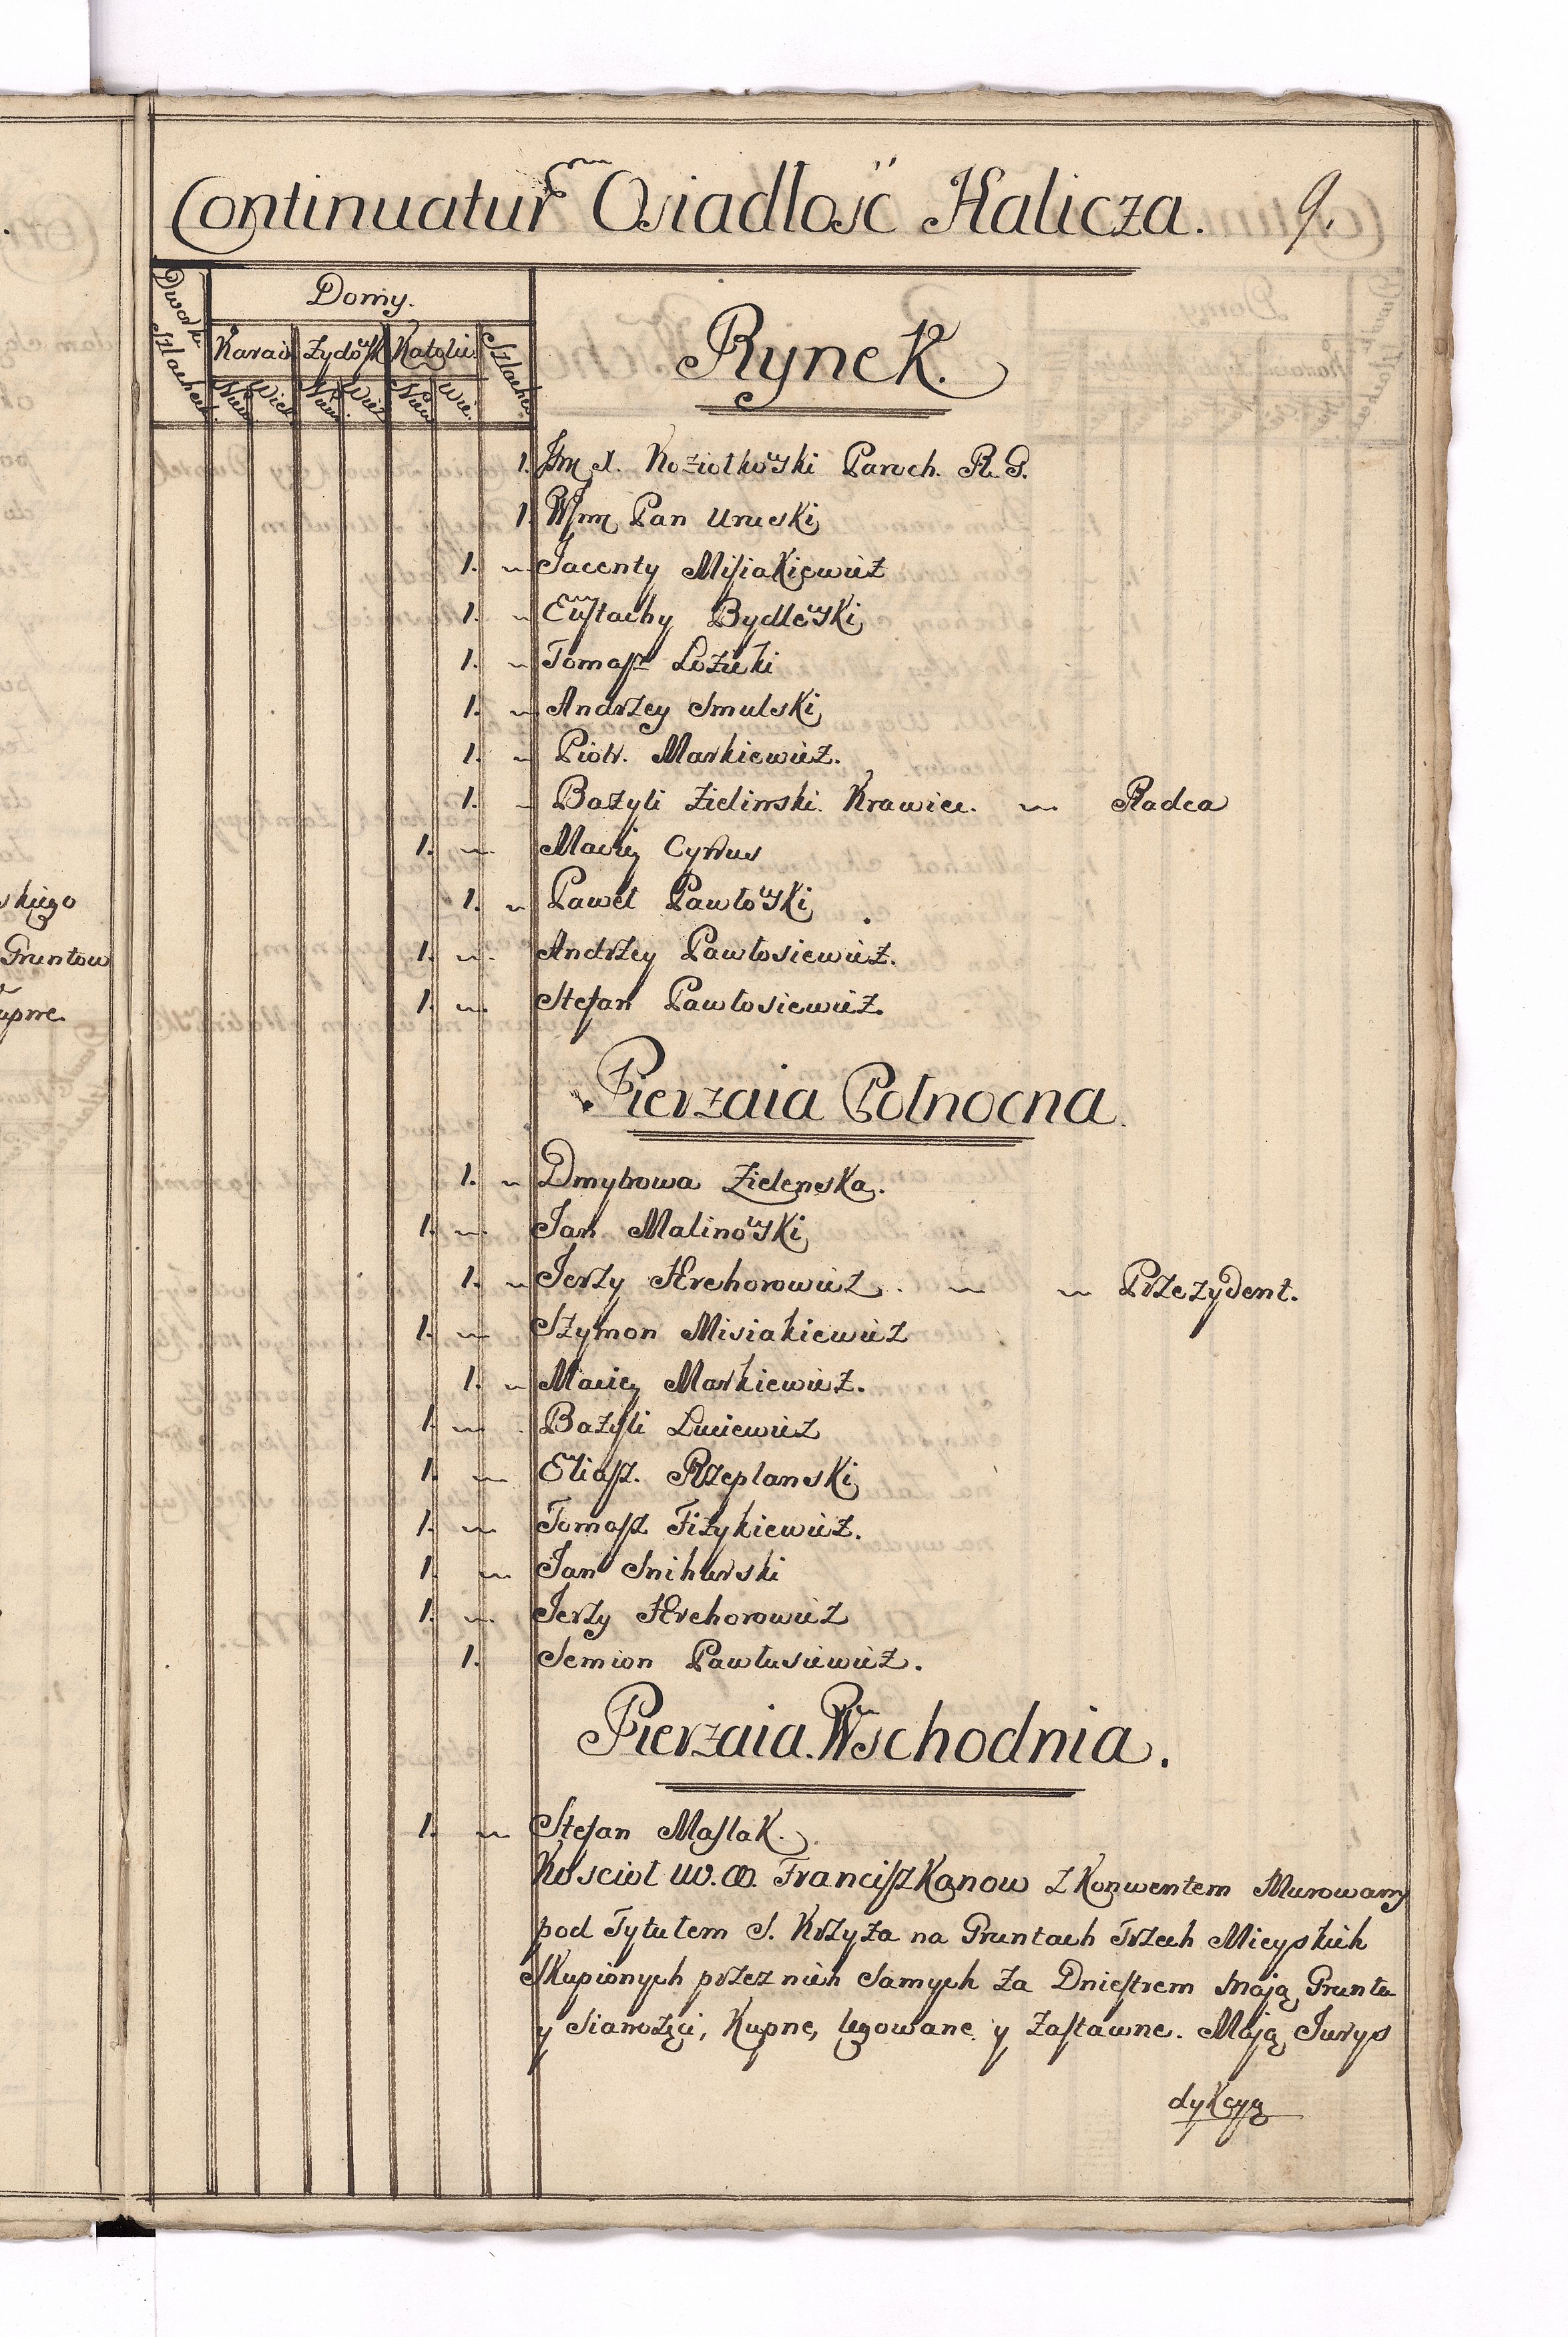 Continuatur Osiadłość Halicza. 9.
Dworki Szlachec.
Domy.
Karai Zydosk Katolic. Szlache.
Niew Wiel. Niew. Wiel Niew Wie.
Rynek.
1. Jm X. Koziołkowski Paroch. R. G.
1. WJmm Pan Uruski
1. Jacenty Misiakiewicz
1. Eustachy Bydlowski
1. Tomasz Łozicki
1. Andrzey Smulski
1. Piotr. Markiewicz.
1. Bazyli Zielinski Krawiec. Radca
1. Maciey Cyrus
1. Paweł Pawłowski
1. Andrzey Pawłosiewicz.
1. Stefan Pawłosiewicz.
Pierzaia Połnocna.
1. Dmytrowa Zielenska.
1. Jan Malinowski
1. Jerzy Hrehorowicz. Prezydent.
1. Szymon Misiakiewicz
1. Maciey Markiewicz.
1. Bazyli Luciewicz
1. Eliasz. Rzeplanski
1. Tomasz Fizykiewicz.
1. Jan Snihurski
1. Jerzy Hrehorowicz
1. Semion Pawłusiewicz.
Pierzaia Wschodnia.
1. Stefan Maslak.
Kosciol W.O. Franciszkanow z Konwentem Murowany
pod Tytułem S. Krzyża na Gruntach Trzech Mieyskich
skupionych przez nich samych za Dniestrem Mają Grunta
y Sianożęci, Kupne, legowane y Zastawne. Mają Jurys
dykcyą
skiego
Gruntow
upne